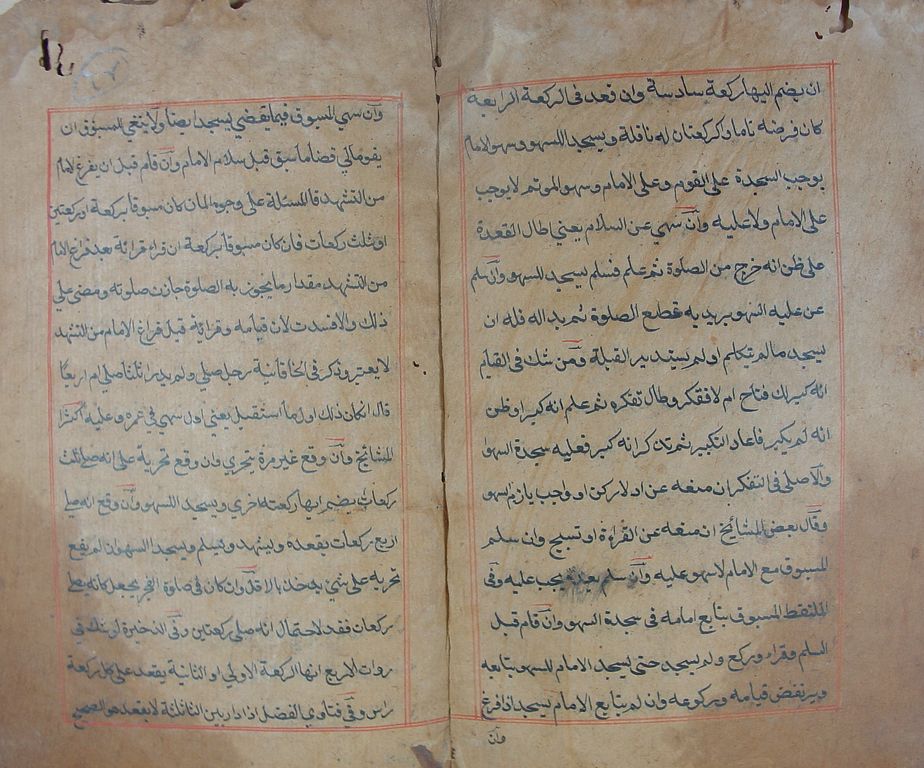 ان يضم اليها ركعة سادسة وان قعد فى الركعة الرابعة
كان فرضه تاما وركعتان له نافلة ويسجد للسهو وسهو الامام
يوجب السجدة على القوم وعلى الامام وسهو الموتم لا يوجب
على الامام ولا عليه وان سهي عن السلام يعني اطال القعدة
على ظن انه خرج من الصلوة ثم علم فسلم يسجد للسهو وان سلم
عن عليه السهو يريد به قطع الصلوة ثم بدا له فله ان
يسجد ما لم يتكلم او لم يستدبر القبلة ومن شك فى القيام
انه كبر لافتتاح ام لا فتفكر وطال تفكره ثم علم انه كبر او ظن
انه لم يكبر فاعاد التكبير ثم تذكر انه كبر فعليه سجدة السهو
والاصل فى التفكر ان منعه عن اداء ركن او واجب يلزم السهو
وقال بعض المشائخ ان منعه عن القراءة او تسبيح وان سلم
المسبوق مع الامام لا سهو عليه وان سلم بعده يجب عليه وفى
الملتقط المسبوق يتابع امامه فى سجدة السهو وان قام قبل
السلم وقراء وركع ولم يسجد حتى يسجد الامام للسهو يتابعه
ويرتفض قيامه وركوعه وان لم يتابع الامام يسجد اذا فرغ
وان
وان سهي المسبوق فيما يقضي يسجد ايضا ولا ينبغي للمسبوق ان
يقوم الي قضا ما سبق قبل سلام الامام وان قام قبل ان يفرغ الامام
من التشهد فالمسئلة على وجوه اما ان كان مسبوقا بركعة او ركعتين
او ثلث ركعات فان كان مسبوقا بركعة ان قراء قرائة بعد فراغ الامام
من التشهد مقدار ما يجوز به الصلوة جازت صلوته ومضى علي
ذلك والا فسدت لان قيامه وقراءته قبل فراغ الامام من التشهد
لا يعتبر وذكر فى الخاقانية رجل صلي ولم يدر اثلثا صلي ام اربعا
قال ان كان ذلك اول ما استقبل يعني اول سهي فى عمره وعليه اكثر
المشائخ وان وقع غير مرة يتحري وان وقع تحريه على انه صلي ثلث
ركعات يضم اليها ركعته اخري ويسجد للسهو وان وقع انه صلي
اربع ركعات يقعده ويتشهد ويسلم ويسجد السهو وان لم يقع
تحريه على شئ ياخذ بالاقل وان كان فى صلوة الفجر يجعل كانه صلي
ركعات فقد لاحتمال انه صلي ركعتين وفى الذخيرة لو شك فى
ذوات الاربع انها الركعة الاولي او الثانية يقعد على كل ركعة
راس وفى فتاوي الفضل اذا دار بين الثالثة لا يقعد هو الصحيح